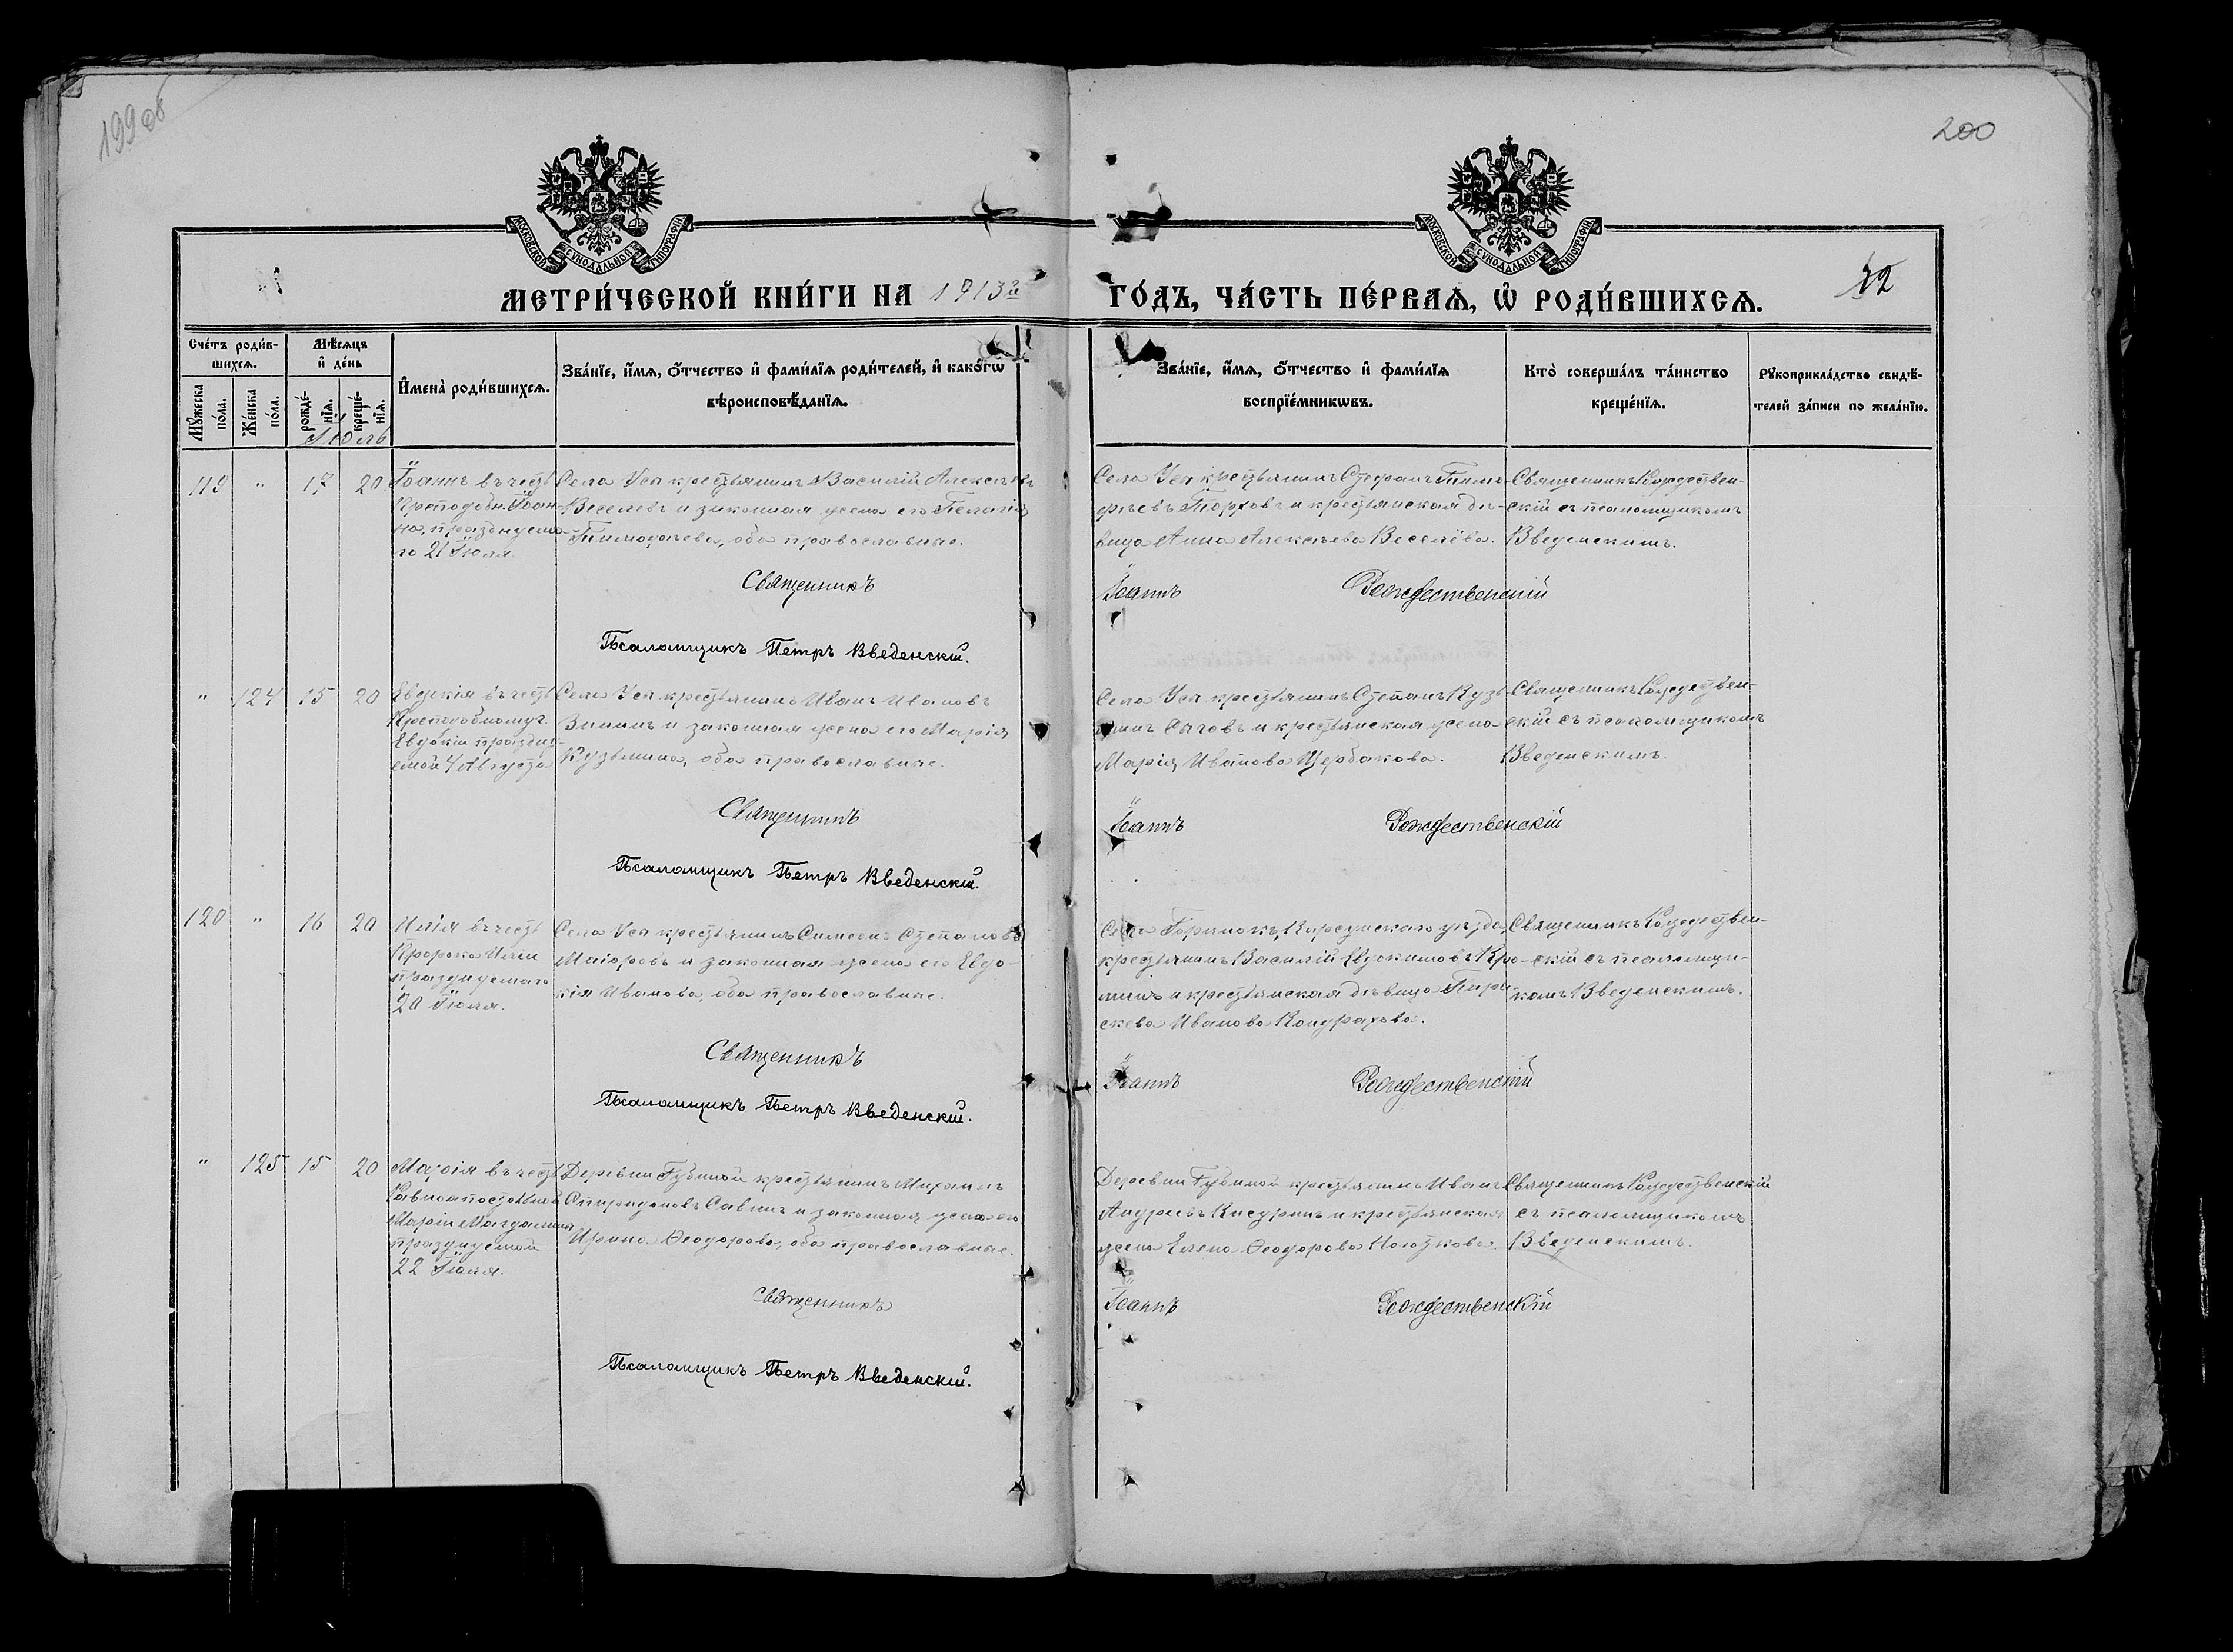 199 об
200
МОСКОВСКОЙ СѴНОДАЛЬНОЙ ТИПОГРАФІИ
МОСКОВСКОЙ СѴНОДАЛЬНОЙ ТИПОГРАФІИ
МЕТРИ́ЧЕСКОЙ КНИ́ГИ НА 1913й
ГО́ДЪ, ЧА́СТЬ ПЕ́РВАѦ, Ѡ҆ РОДИ́ВШИХСѦ.
32
Сче́тъ роди́в-
шихсѧ.
Мѣ́сѧцъ
и҆ де́нь
Мꙋ́жеска
по́ла.
Же́нска
по́ла.
рожде́-
нїѧ.
креще́-
нїѧ.
И҆мена̀ роди́вшихсѧ.
Зва́нїе, и҆́мѧ, ѻ҆́тчество и҆ фами́лїѧ роди́телей, и҆ како́гѡ
вѣроисповѣ́данїѧ.
Зва́нїе, и҆́мѧ, ѻ҆́тчество и҆ фами́лїѧ
воспрїе́мникѡвъ.
Кто̀ соверша́лъ та́инство
креще́нїѧ.
Рꙋкоприкла́дство свидѣ́-
телей за́писи по жела́нїю.
Іюль
119 " 17 20
Іоаннъ въ честь
Преподобн. Іоан-
на, празднуема-
го 21 Іюля.
Села Усп крестьянинъ Василій Алексѣевъ
Веселевъ и законная жена его Пелагія
Тимофѣева, оба православные.
Села Усп крестьянинъ Стефанъ Тимо-
фѣевъ и крестьянская дѣ-
вица Анна Алексѣева Веселёва.
Священникъ Рождествен-
скій съ псаломщикомъ
Введенскимъ.
Священникъ
Іоаннъ Рождественскій
Псаломщикъ Петръ Введенскій.
" 124 15 20
Евдокія въ честь
Преподобномуч.
Евдокіи праздну-
емой 4 Августа
Села Усп крестьянинъ Иванъ Ивановъ
Зининъ и законная жена его Марія
Кузьмина, оба православные.
Села Усп крестьянинъ Степанъ Кузь-
минъ Сычовъ и крестьянская жена
Марія Иванова Щербакова.
Священникъ Рождествен-
скій съ псаломщикомъ
Введенскимъ.
Священникъ
Іоаннъ Рождественскій
Псаломщикъ Петръ Введенскій.
120 " 16 20
Илія въ честь
Пророка Иліи
празднуемаго
20 Іюля.
Села Усп крестьянинъ Симеонъ Степановъ
Маіоровъ и законная жена его Евдо-
кія Иванова, оба православные.
Села Горѣнокъ, Карсунскаго уѣзда,
крестьянинъ Василій Евдокимовъ
и крестьянская дѣвица Пара-
скева Иванова Кондрахова.
Священникъ Рождествен-
скій съ псаломщи-
комъ Введенскимъ.
Священникъ
Іоаннъ Рождественскій
Псаломщикъ Петръ Введенскій.
" 125 15 20
Марія въ честь
Равноапостольной
Маріи Магдалины
празднуемой
22 Іюля.
Деревни Губиной крестьянинъ Михаилъ
Спиридоновъ Савинъ и законная жена его
Ирина Ѳеодорова, оба православные.
Деревни Губиной крестьянинъ Иванъ
Андреевъ и крестьянская
жена Елена Ѳеодорова
Священникъ Рождественскій
съ псаломщикомъ
Введенскимъ.
Священникъ
Іоаннъ Рождественскій
Псаломщикъ Петръ Введенскій.